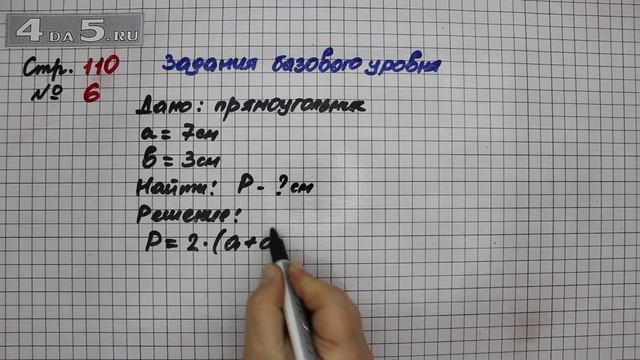 4 DA 5.RU
Стр. 110 Задания базового уровня
№ 6
Дано: прямоугольник
a = 7см
b = 3см
Найти: P - ? см
Решение:
P = 2 · (a +